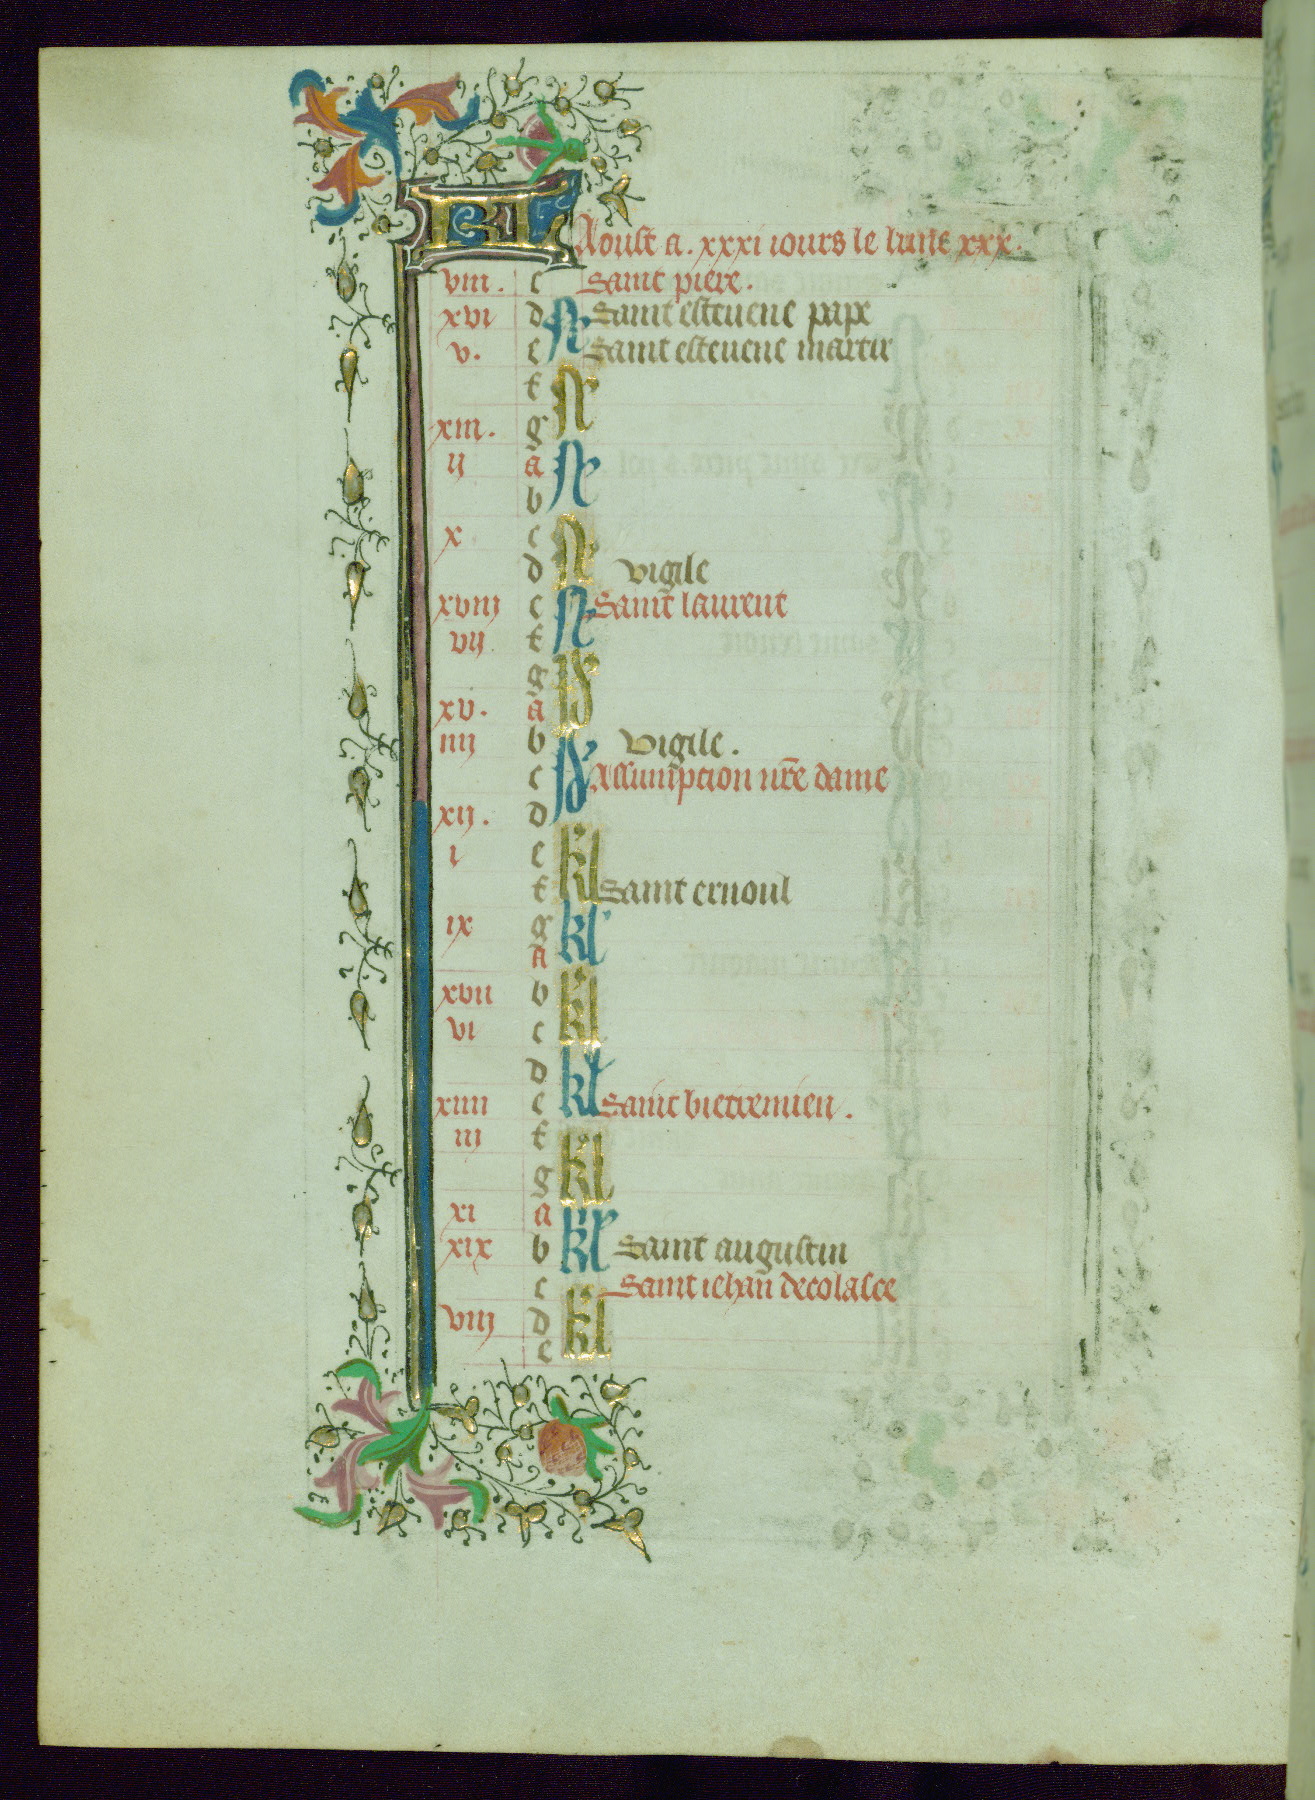 KL Aoust a. xxxi iours le lune xxx.
viii. c saint piere.
xvi d N Saint esteuene pape
v. e Saint esteuene martir
f N
xiii. g
ii a N
b
x c N
d vigile
xviii e N Saint laurent
vii f
g id
xv. a
iiii b id vigile.
c Assumption nr̄e dame
xii. d
i e kl
f Saint ernoul
ix g kl
a
xvii b kl
vi c
d kl
xiiii e Saint bietremieu.
iii f kl
g
xi a kl
xix b Saint augustin
c kl Saint iehan decolasce
viii d
e